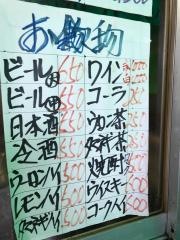 お飲物
ビール大 650
ビール中 550
日本酒 550
冷酒 550
ウーロンハイ 500
レモンハイ 500
緑茶ハイ 500
ワイン
コーラ 250
ウロン茶 250
緑茶 250
焼酎
ウイスキー 500
コークハイ 500